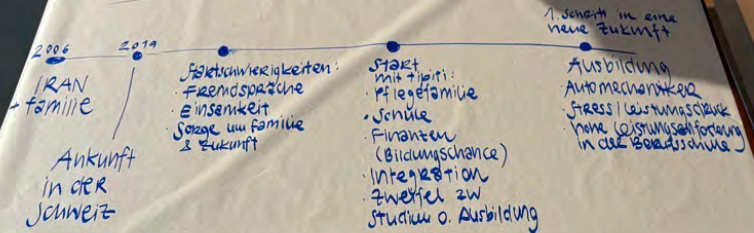 2006
IRAN
+ familie
2019
Ankunft
in der
Schweiz
Startschwierigkeiten:
· Fremdsprache
· Einsamkeit
· Sorge um Familie
& Zukunft
Start
mit tipiti:
· Pflegefamilie
· Schule
· Finanzen
(Bildungschance)
· Integration
· Zweifel zw
Studium o. Ausbildung
1. Schritt in eine
neue Zukunft
Ausbildung
· Automechaniker
· Stress/Leistungsdruck
· hohe Leistungsanforderung
in der Berufsschule